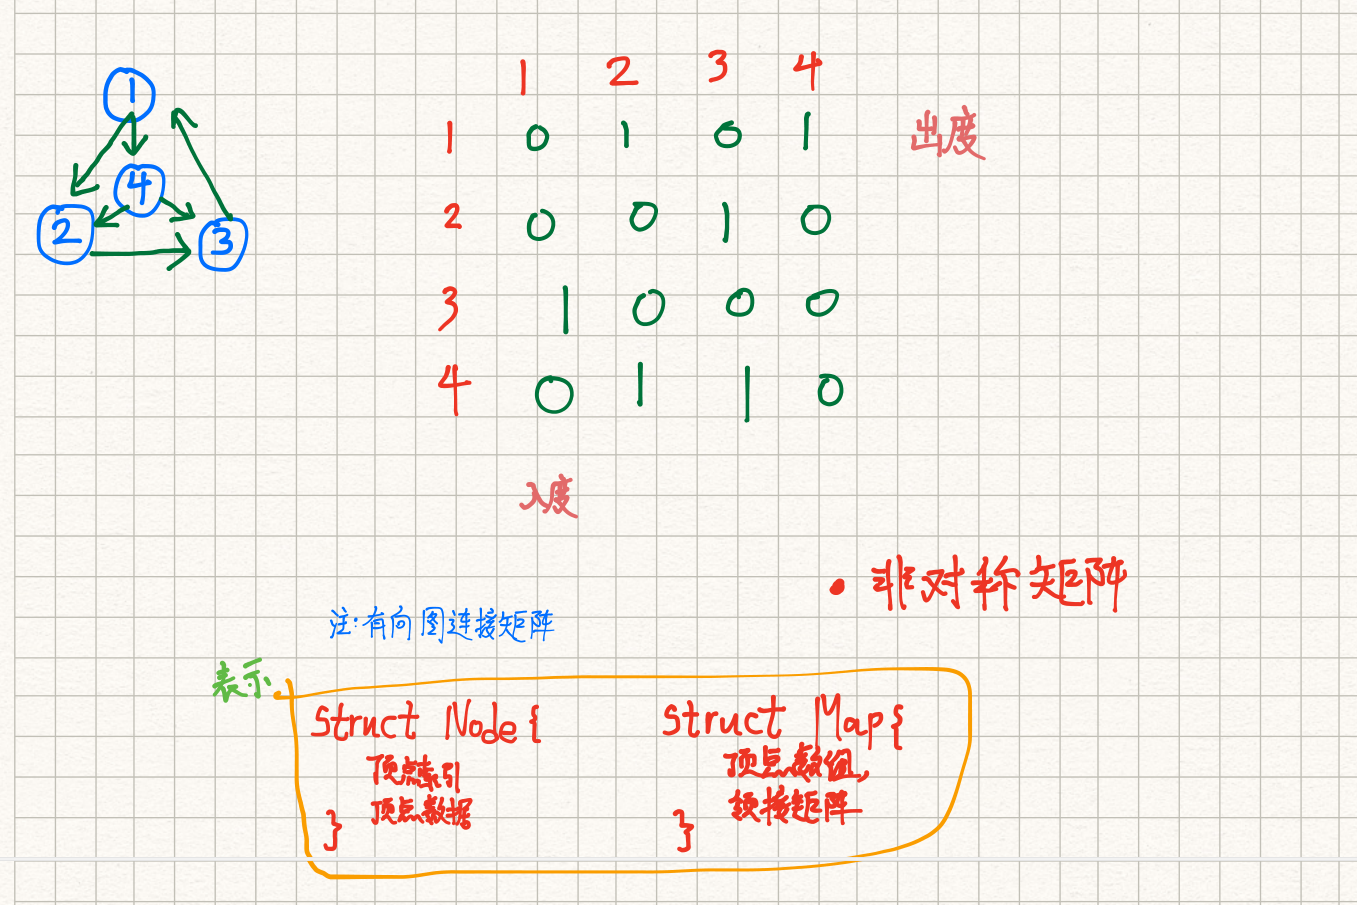 1
4
2
3
1 2 3 4
1 0 1 0 1 出度
2 0 0 1 0
3 1 0 0 0
4 0 1 1 0
入度
• 非对称矩阵
注:有向图连接矩阵
表示
Struct Node{
顶点索引
顶点数据
}
Struct Map{
顶点数组,
接矩阵
}